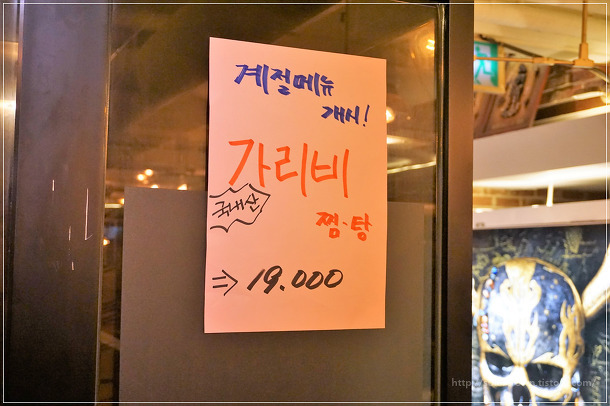 계절메뉴
개시!
가리비
국내산
찜·탕
⇒ 19.000